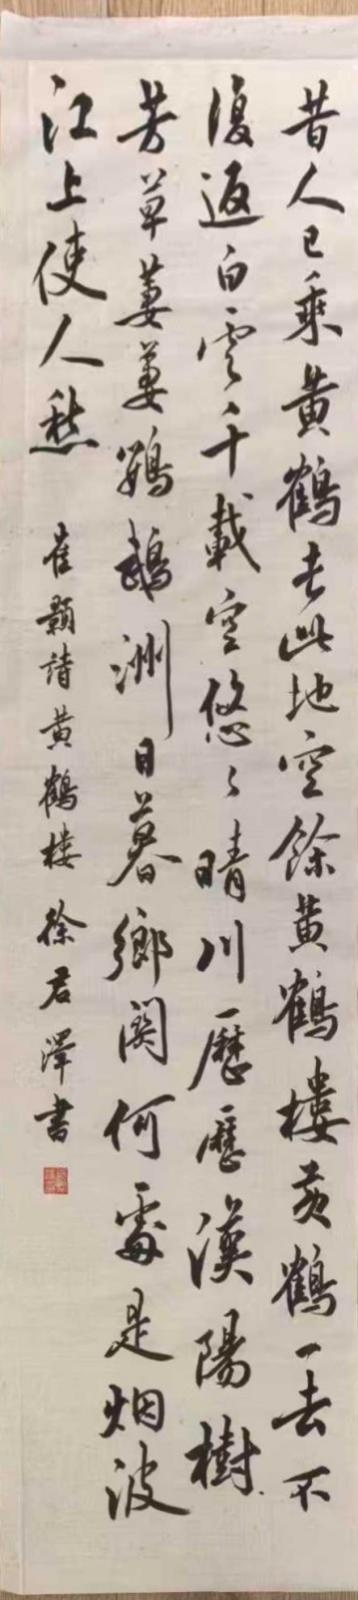 昔人已乘黄鶴去此地空餘黄鶴樓黄鶴一去不
復返白雲千載空悠々晴川歷歷漢陽樹
芳草萋萋鸚鵡洲日暮鄉関何處是烟波
江上使人愁 崔顥詩黄鶴樓 徐君澤書